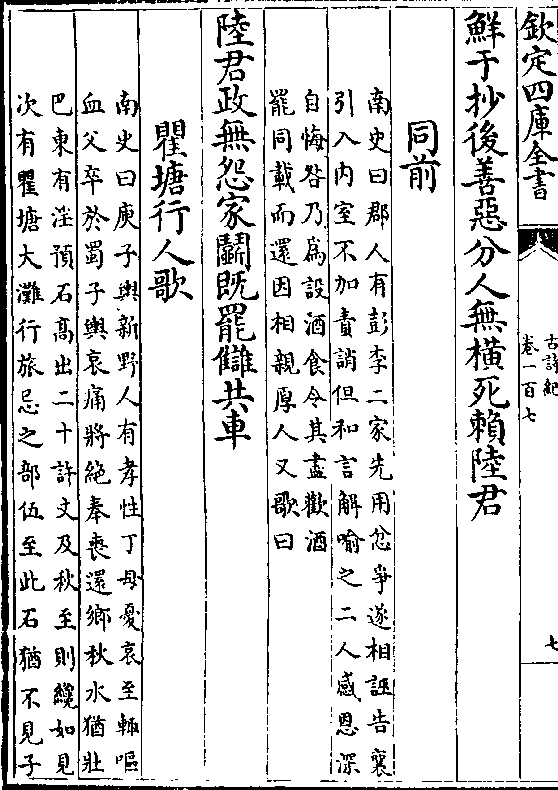 欽定四庫全書
古詩紀
卷一百七
七
鮮于抄後善惡分人無橫死賴陸君
同前
南史曰郡人有彭李二家先用忿爭遂相誣告襄
引入内室不加責誚但和言解喻之二人感恩深
自悔咎乃為設酒食令其盡歡酒
罷同載而還因相親厚人又歌曰
陸君政無怨家鬬既罷讎共車
瞿塘行人歌
南史曰庾子輿新野人有孝性丁母憂哀至輙嘔
血父卒於蜀子輿哀痛將絶奉喪還鄉秋水猶壯
巴東有淫預石髙出二十許丈及秋至則纔如見
次有瞿塘大灘行旅忌之部伍至此石猶不見子